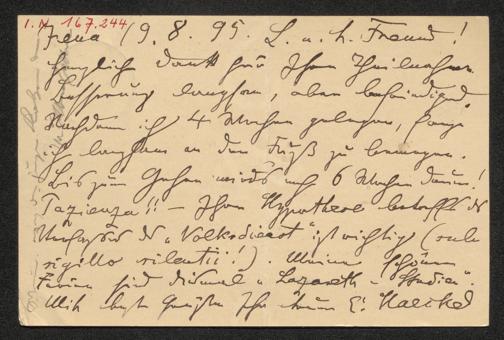 I. N. 167.244
Jena 19. 8. 95. L. u. h. Freund!
Herzlich Dank für Ihre Theilnahme.
Besserung langsam, aber befriedigend.
Nachdem ich 4 Wochen gelegen, fange
ich langsam an den Fuß zu bewegen.
Bis zum Gehen wird's noch 6 Wochen dauern!
Pazienza!! – Ihre Hypothese betreffs des
Verfassers des "Volksdienst" ist richtig (sub
sigillo silentii!). Meine schönen
Ferien sind diesmal "Lazareth-Studien".
Mit best Grüßen Ihr treuer E. Haeckel